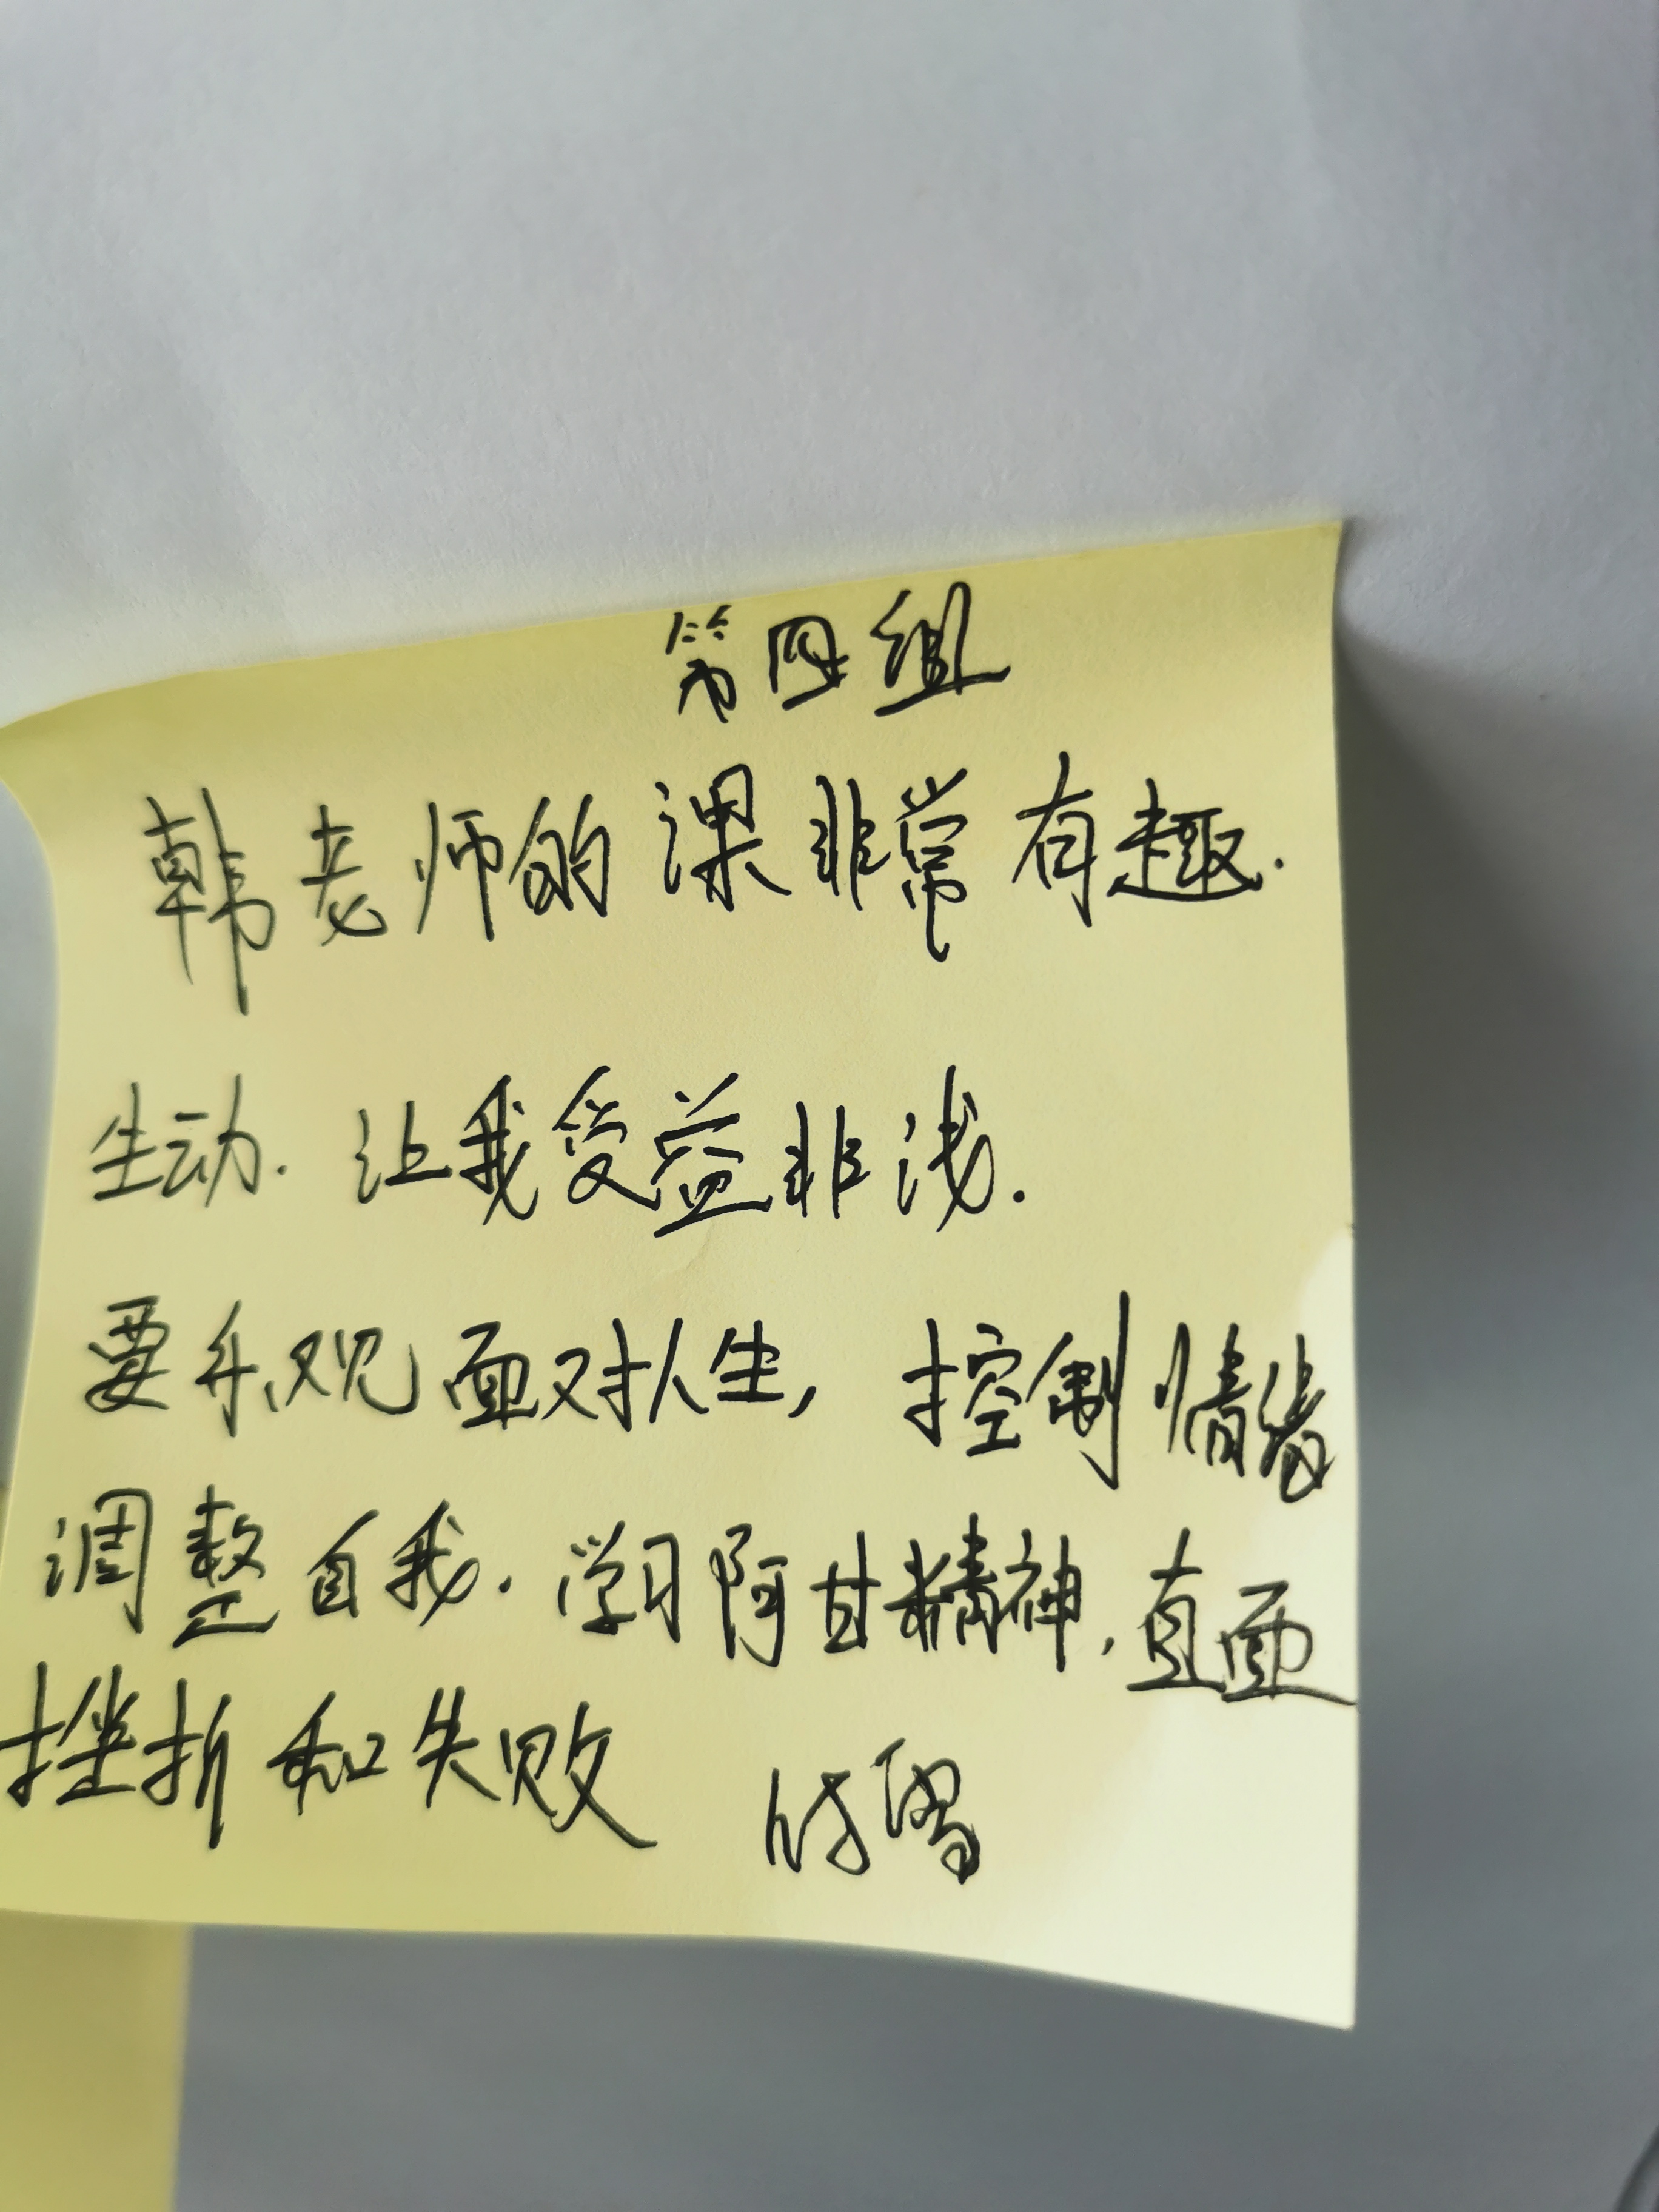 第四组
韩老师的课非常有趣.
生动. 让我受益非浅.
要乐观面对人生, 控制情绪
调整自我. 学习阿甘精神, 直面
挫折和失败